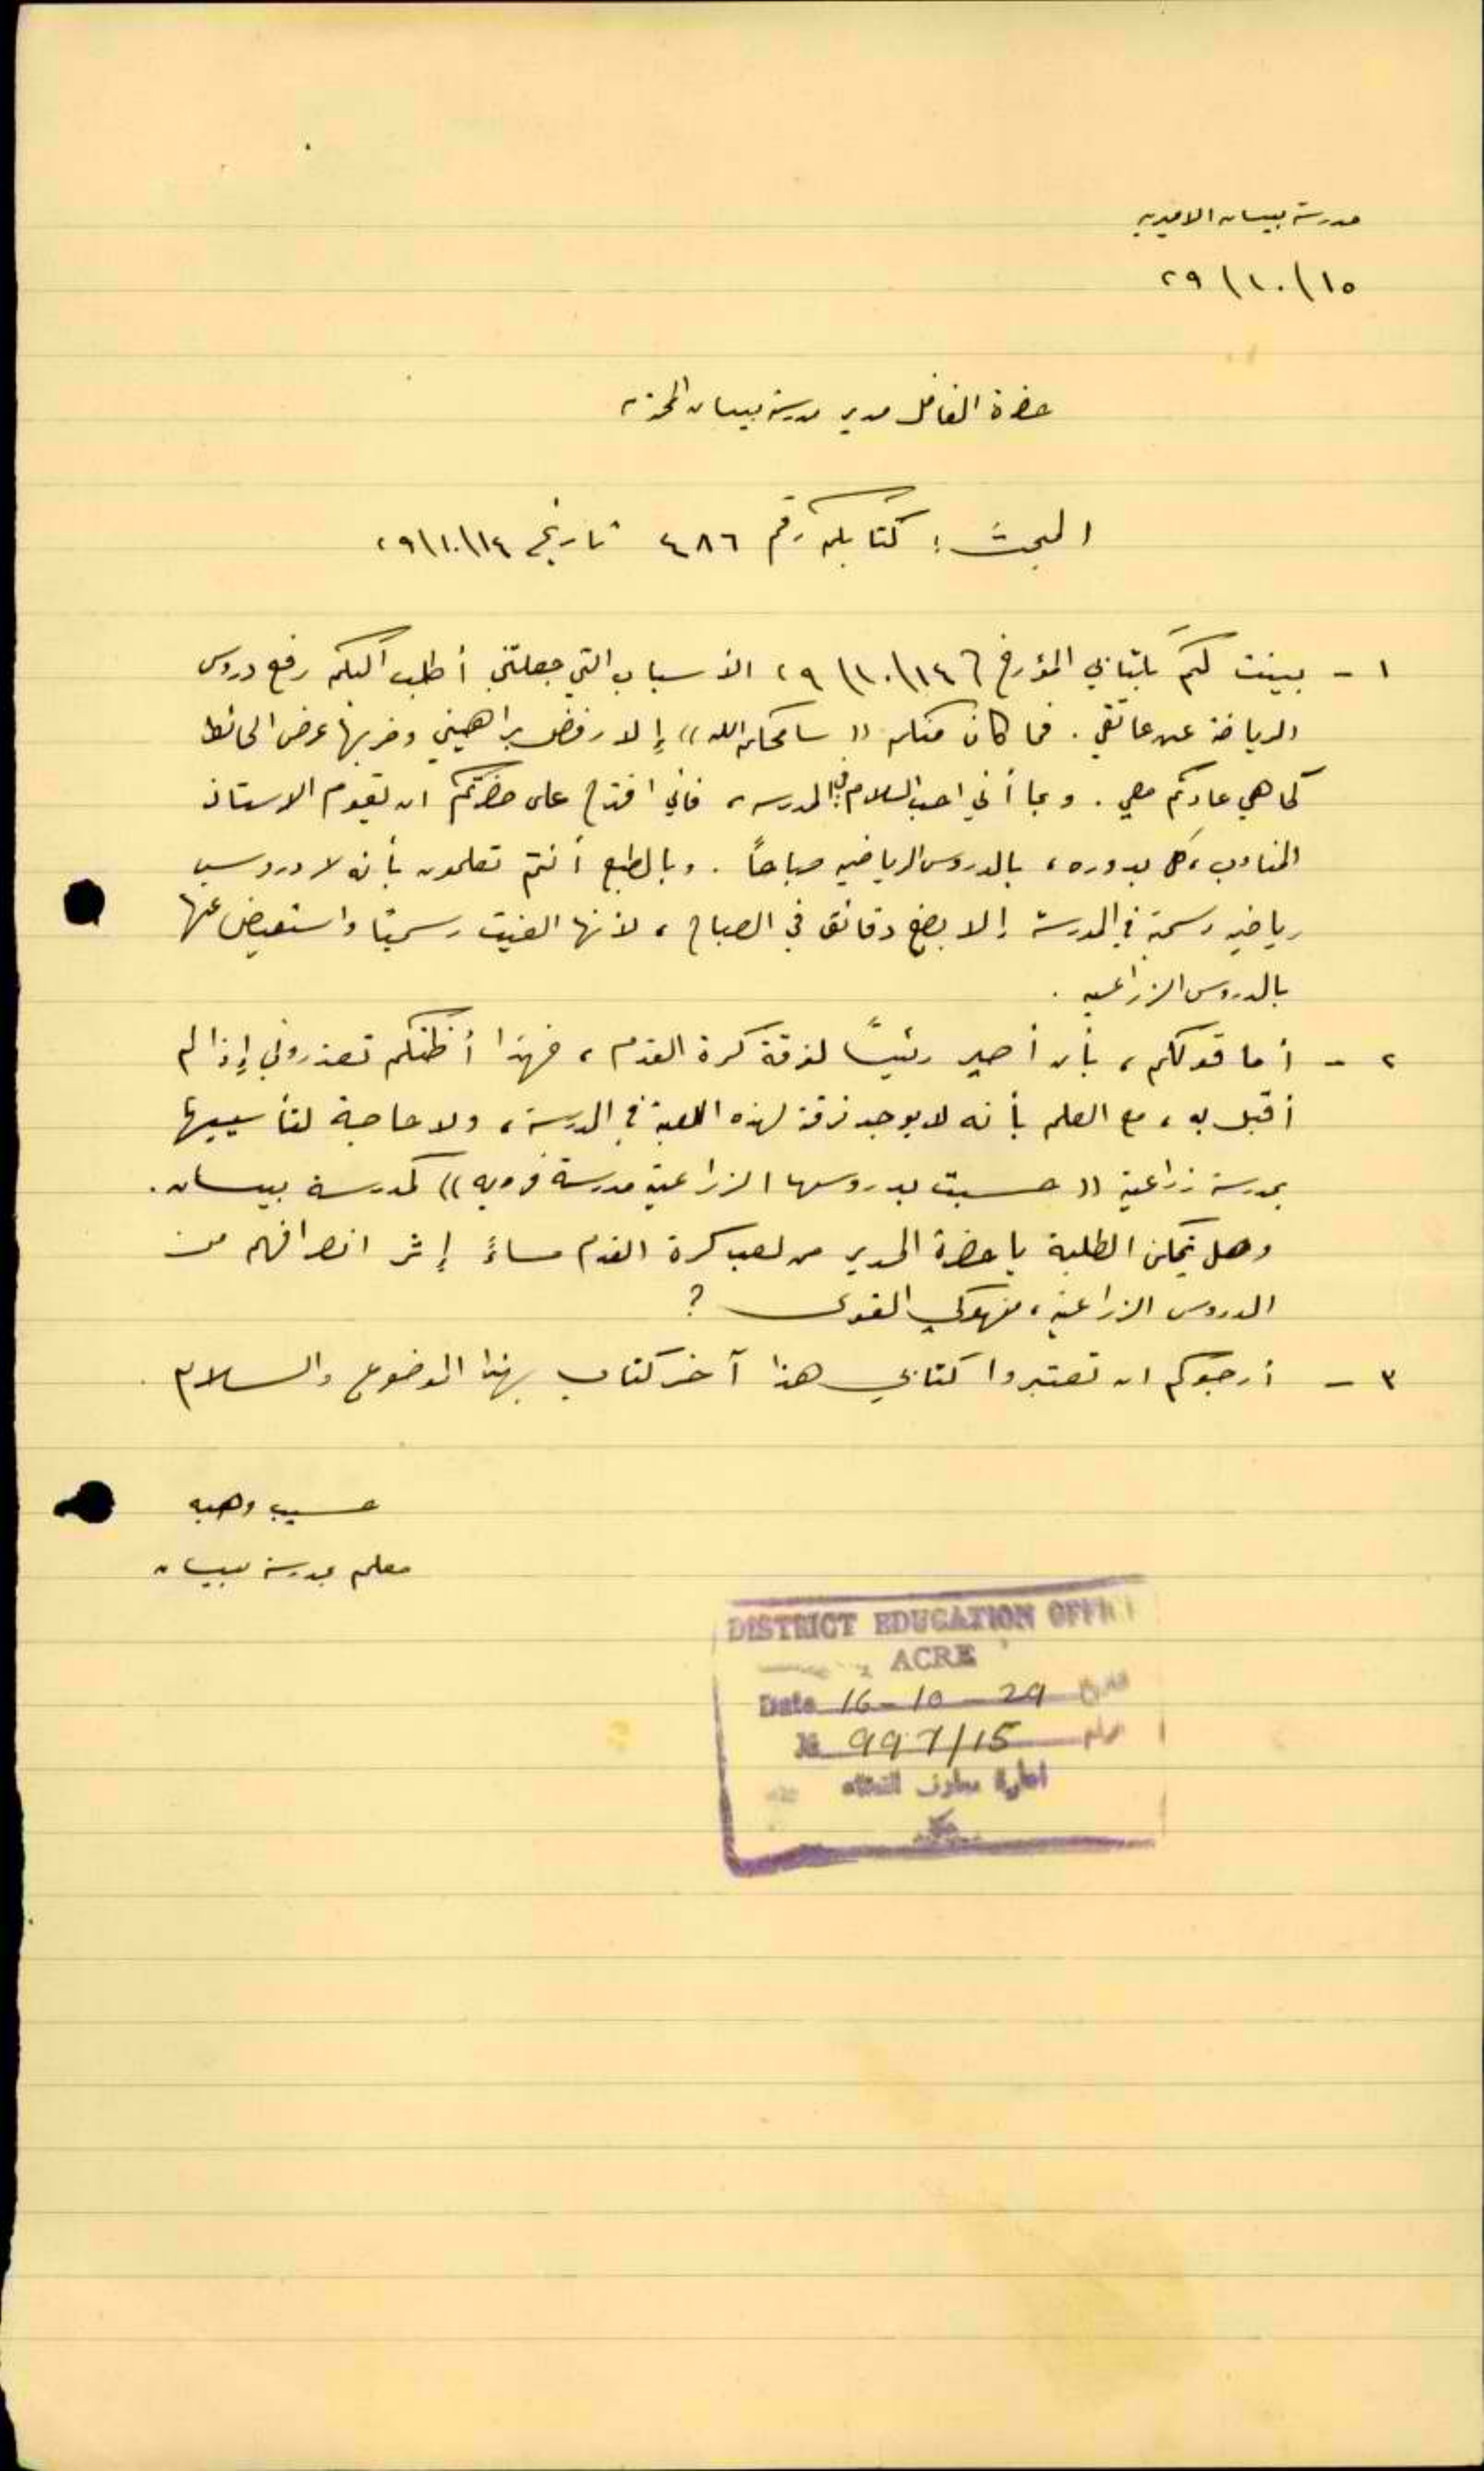 مدرسة بيسان الاميريه
١٥/١٠/٢٩
حضرة الفاضل مدير مدرسة بيسان المحترم
المبحث: كتابكم رقم ٤٨٦ تاريخ ١٤/١٠/٢٩
١ - بينت لكم بكتابي المؤرخ ١٤/١٠/٢٩ الأسباب التي جعلتني أطلب اليكم رفع دروس
الرياضة عن عاتقي. فما كان منكم ((سامحكم الله)) إلا رفض براهيني وضربها عرض الحائط
كما هي عادتكم معي. وبما أني احب السلام في المدرسه، فاني اقترح على حضرتكم ان يقوم الاستاذ
المناوب، كل بدوره، بالدروس الرياضيه صباحاً. وبالطبع أنتم تعلمون بأنه لا دروس
رياضيه رسمية في المدرسة إلا بضع دقائق في الصباح، لأنها الغيت رسمياً واستعيض عنها
بالدروس الزراعيه.
٢ - أما قولكم، بأن أصير رئيساً لفرقة كرة القدم، فهذا أظنكم تعذروني إذا لم
أقبل به، مع العلم بأنه لا يوجد فرقة لهذه اللعبة في المدرسة، ولا حاجة لتأسيسها
بمدرسة زراعية ((حسبت بدروسها الزراعية مدرسة قرويه)) كمدرسة بيسان.
وهل يتمكن الطلبة يا حضرة المدير من لعب كرة القدم مساءً إثر انصرافهم من
الدروس الزراعية، منهوكي القوى ؟
٣ - أرجوكم ان تعتبروا كتابي هذا آخر كتاب بهذا الموضوع والسلام.
حسيب وهبه
معلم بمدرسة بيسان
DISTRICT EDUCATION OFFICE
ACRE
Date 16-10-29
№ 997/15
ادارة معارف القضاء
عكا